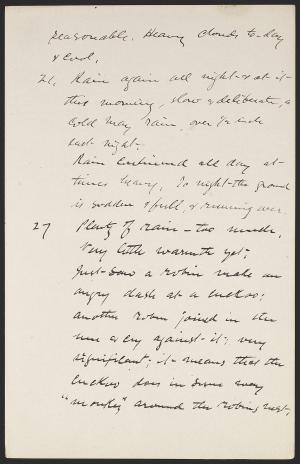 seasonable. Heavy clouds to-day
& cool.
26, Rain again all night & at it
this morning, slow & deliberate, a
cold May rain, over ½ inch
last night.
Rain continued all day at
times heavy, To night the ground
is sodden & full, & running over.
27 Plenty of rain — too much,
Very little warmth yet;
Just saw a robin make an
angry dash at a cuckoo;
another robin joined in the
hue & cry against it; very
significant; it means that the
cuckoo does in some way
"monkey" around the robins nest,